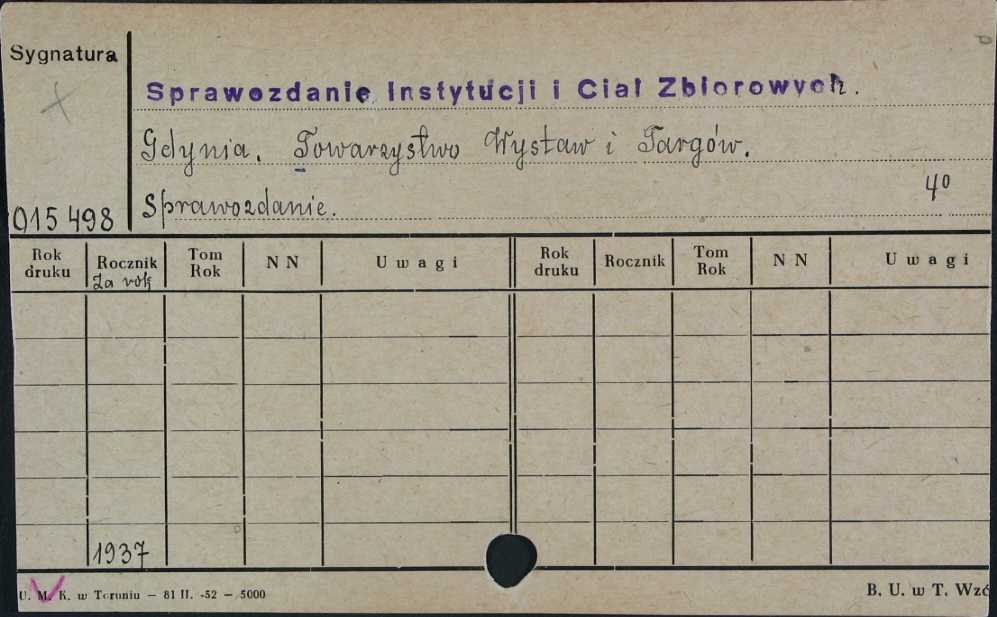 Sygnatura
Sprawozdanie Instytucji i Ciał Zbiorowych.
Gdynia. Towarzystwo Wystaw i Targów.
4º
015 498
Sprawozdanie.
Rok druku Rocznik Tom Rok N N Uwagi Rok druku Rocznik Tom Rok N N Uwagi
Za rok
1937
U. M. K. w Toruniu — 81 II. -52 — 5000
B. U. w T. Wzó